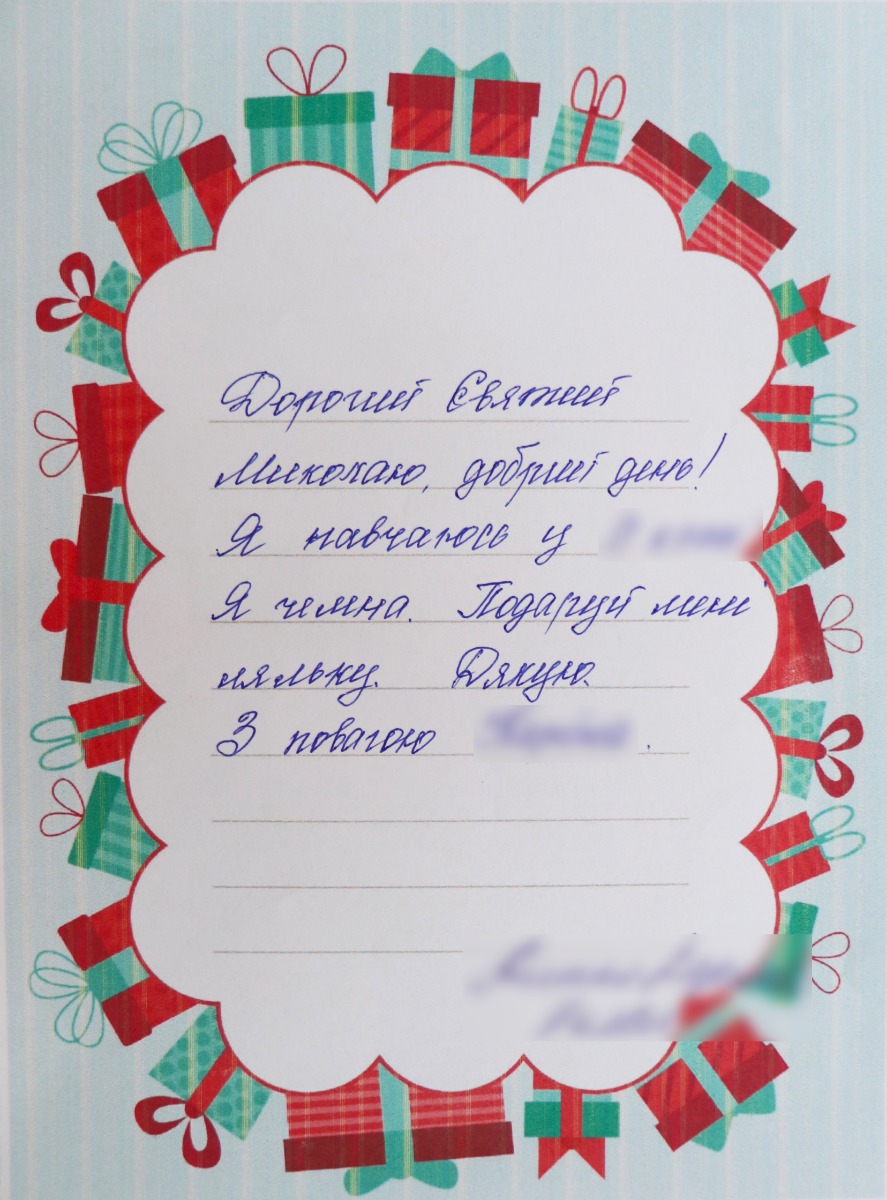 Дорогий Святий
Миколаю, добрий день!
Я навчаюсь у
Я чемна. Подаруй мені
ляльку. Дякую.
З повагою .